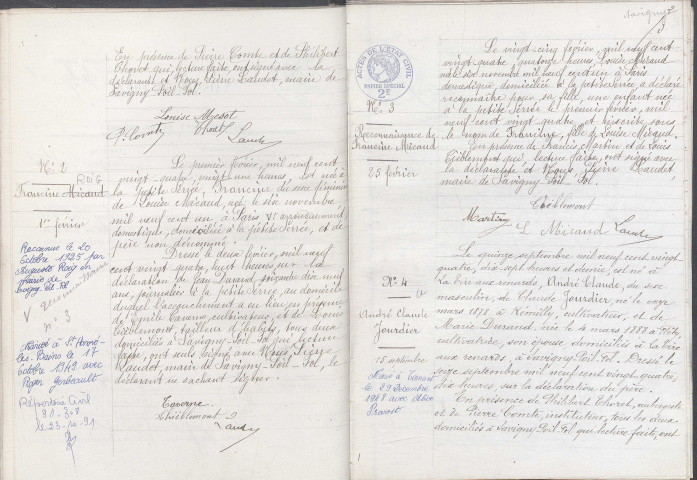 En présence de Pierre Comte et de Philibert
Thoret qui, lecture faite, ont signé avec la
déclarant et Nous, Pierre Laudet, maire de
Savigny Poil Fol.
Louise
P. Comte Thoret Laudet
N° 2
Roig
Francine Micaud
1er février
Le premier février, mil neuf cent
vingt quatre, vingt une heures, est née à
la petite Serrée, Francine, du sexe féminin
de Louise Micaud, née le six novembre
mil neuf cent un à Paris
domestique, domiciliée à la petite Serrée, et de
père non dénommé.
Dressé le deux février, mil neuf
cent vingt quatre, huit heures sur la
déclaration de Jean Durand, soixante dix neuf
ans, journalier à la petite Serrée, au domicile
duquel l'accouchement a eu lieu, en présence
de cultivateur, et de Louis
Thiéblemont, tailleur d'habits, tous deux
domiciliés à Savigny-Poil-Fol, qui, lecture
faite, ont seuls signé avec Nous, Pierre
Laudet, maire de Savigny-Poil-Fol, le
déclarant ne sachant signer.
Thiéblemont
Laudet
Reconnue le 20
octobre 1925 par
Auguste Roig en
mairie de
V
n. 3
Mariée à St Honoré-
les-Bains le 17
octobre 1942 avec
Roger
Répertoire Civil
91.308
le 23.10.91
Savigny
2
3
ACTES DE L'ETAT CIVIL
PAPIER SPECIAL
2F
N° 3
Reconnaissance de
Francine Micaud
25 février
Le vingt-cinq février, mil neuf cent
vingt quatre, quatorze heures, Louise Micaud
née le six novembre mil neuf cent un à Paris
domestique, domiciliée à la petite Serrée a déclaré
reconnaître pour sa fille, une enfant née
à la petite Serrée le premier février, mil
neuf cent vingt quatre et inscrite sous
le nom de Francine, fille de Louise Micaud.
En présence de Francis Martin et de Louis
Thiéblemont qui, lecture faite, ont signé avec
la déclarante et Nous, Pierre Laudet,
maire de Savigny Poil Fol.
Thiéblemont
Martin L. Micaud Laudet
N° 4
André Claude
Jourdier
15 septembre
Marié à
le 29 Décembre
1948 avec
Prevost
Le quinze septembre mil neuf cent vingt
quatre, dix sept heures et demie, est né à
la brie aux renards, André Claude, du sexe
masculin, de Claude Jourdier, né le onze
mars 1878 à Rémilly, cultivateur, et de
Marie Durand, née le 4 mars 1888 à
cultivatrice, son épouse domiciliés à la brie
aux renards, à Savigny Poil Fol. Dressé le
seize septembre mil neuf cent vingt quatre,
dix heures, sur la déclaration du père.
En présence de Philibert Thoret, aubergiste
et de Pierre Comte, instituteur, tous les deux
domiciliés à Savigny Poil Fol qui, lecture faite, ont